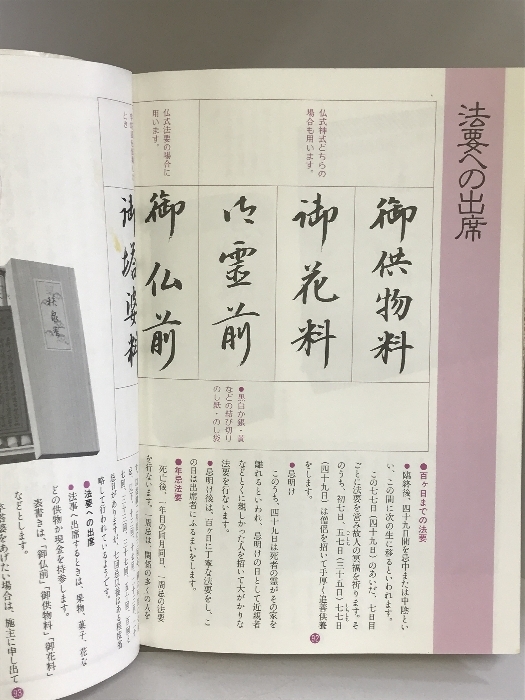 法要への出席
仏式神式どちらの
場合も用います。
仏式法要の場合に
用います。
御供物料
御花料
御霊前
御仏前
御塔婆料
●黒白か銀・黄
などの結び切り
のし紙・のし袋
●百ヶ日までの法要
●臨終後、四十九日間を忌中または中陰とい
い、この間に次の生に移るといわれます。
この七七日(四十九日)のあいだ、七日目
ごとに法要を営み故人の冥福を祈ります。そ
のうち、初七日、五七日(三十五日)七七日
(四十九日)は僧侶を招いて手厚く追善供養
をします。
●忌明け
このうち、四十九日は死者の霊がその家を
離れるといわれ、忌明けの日として近親者
などとくに親しかった人を招いて大がかりな
法要を行ないます。
●忌明け後は、百ヶ日に丁寧な法要をし、こ
の日は出席者にふるまいをします。
●年忌法要
死亡後、一年目の同月同日、一周忌の法要
を行ないます。一周忌は、関係の多くの人を
92
略して行われているようです。
●法要への出席
●法事へ出席するときは、果物、菓子、花な
どの供物か現金を持参します。
表書きは、「御仏前」「御供物料」「御花料」
などとします。
卒塔婆をあげたい場合は、施主に申し出て
93